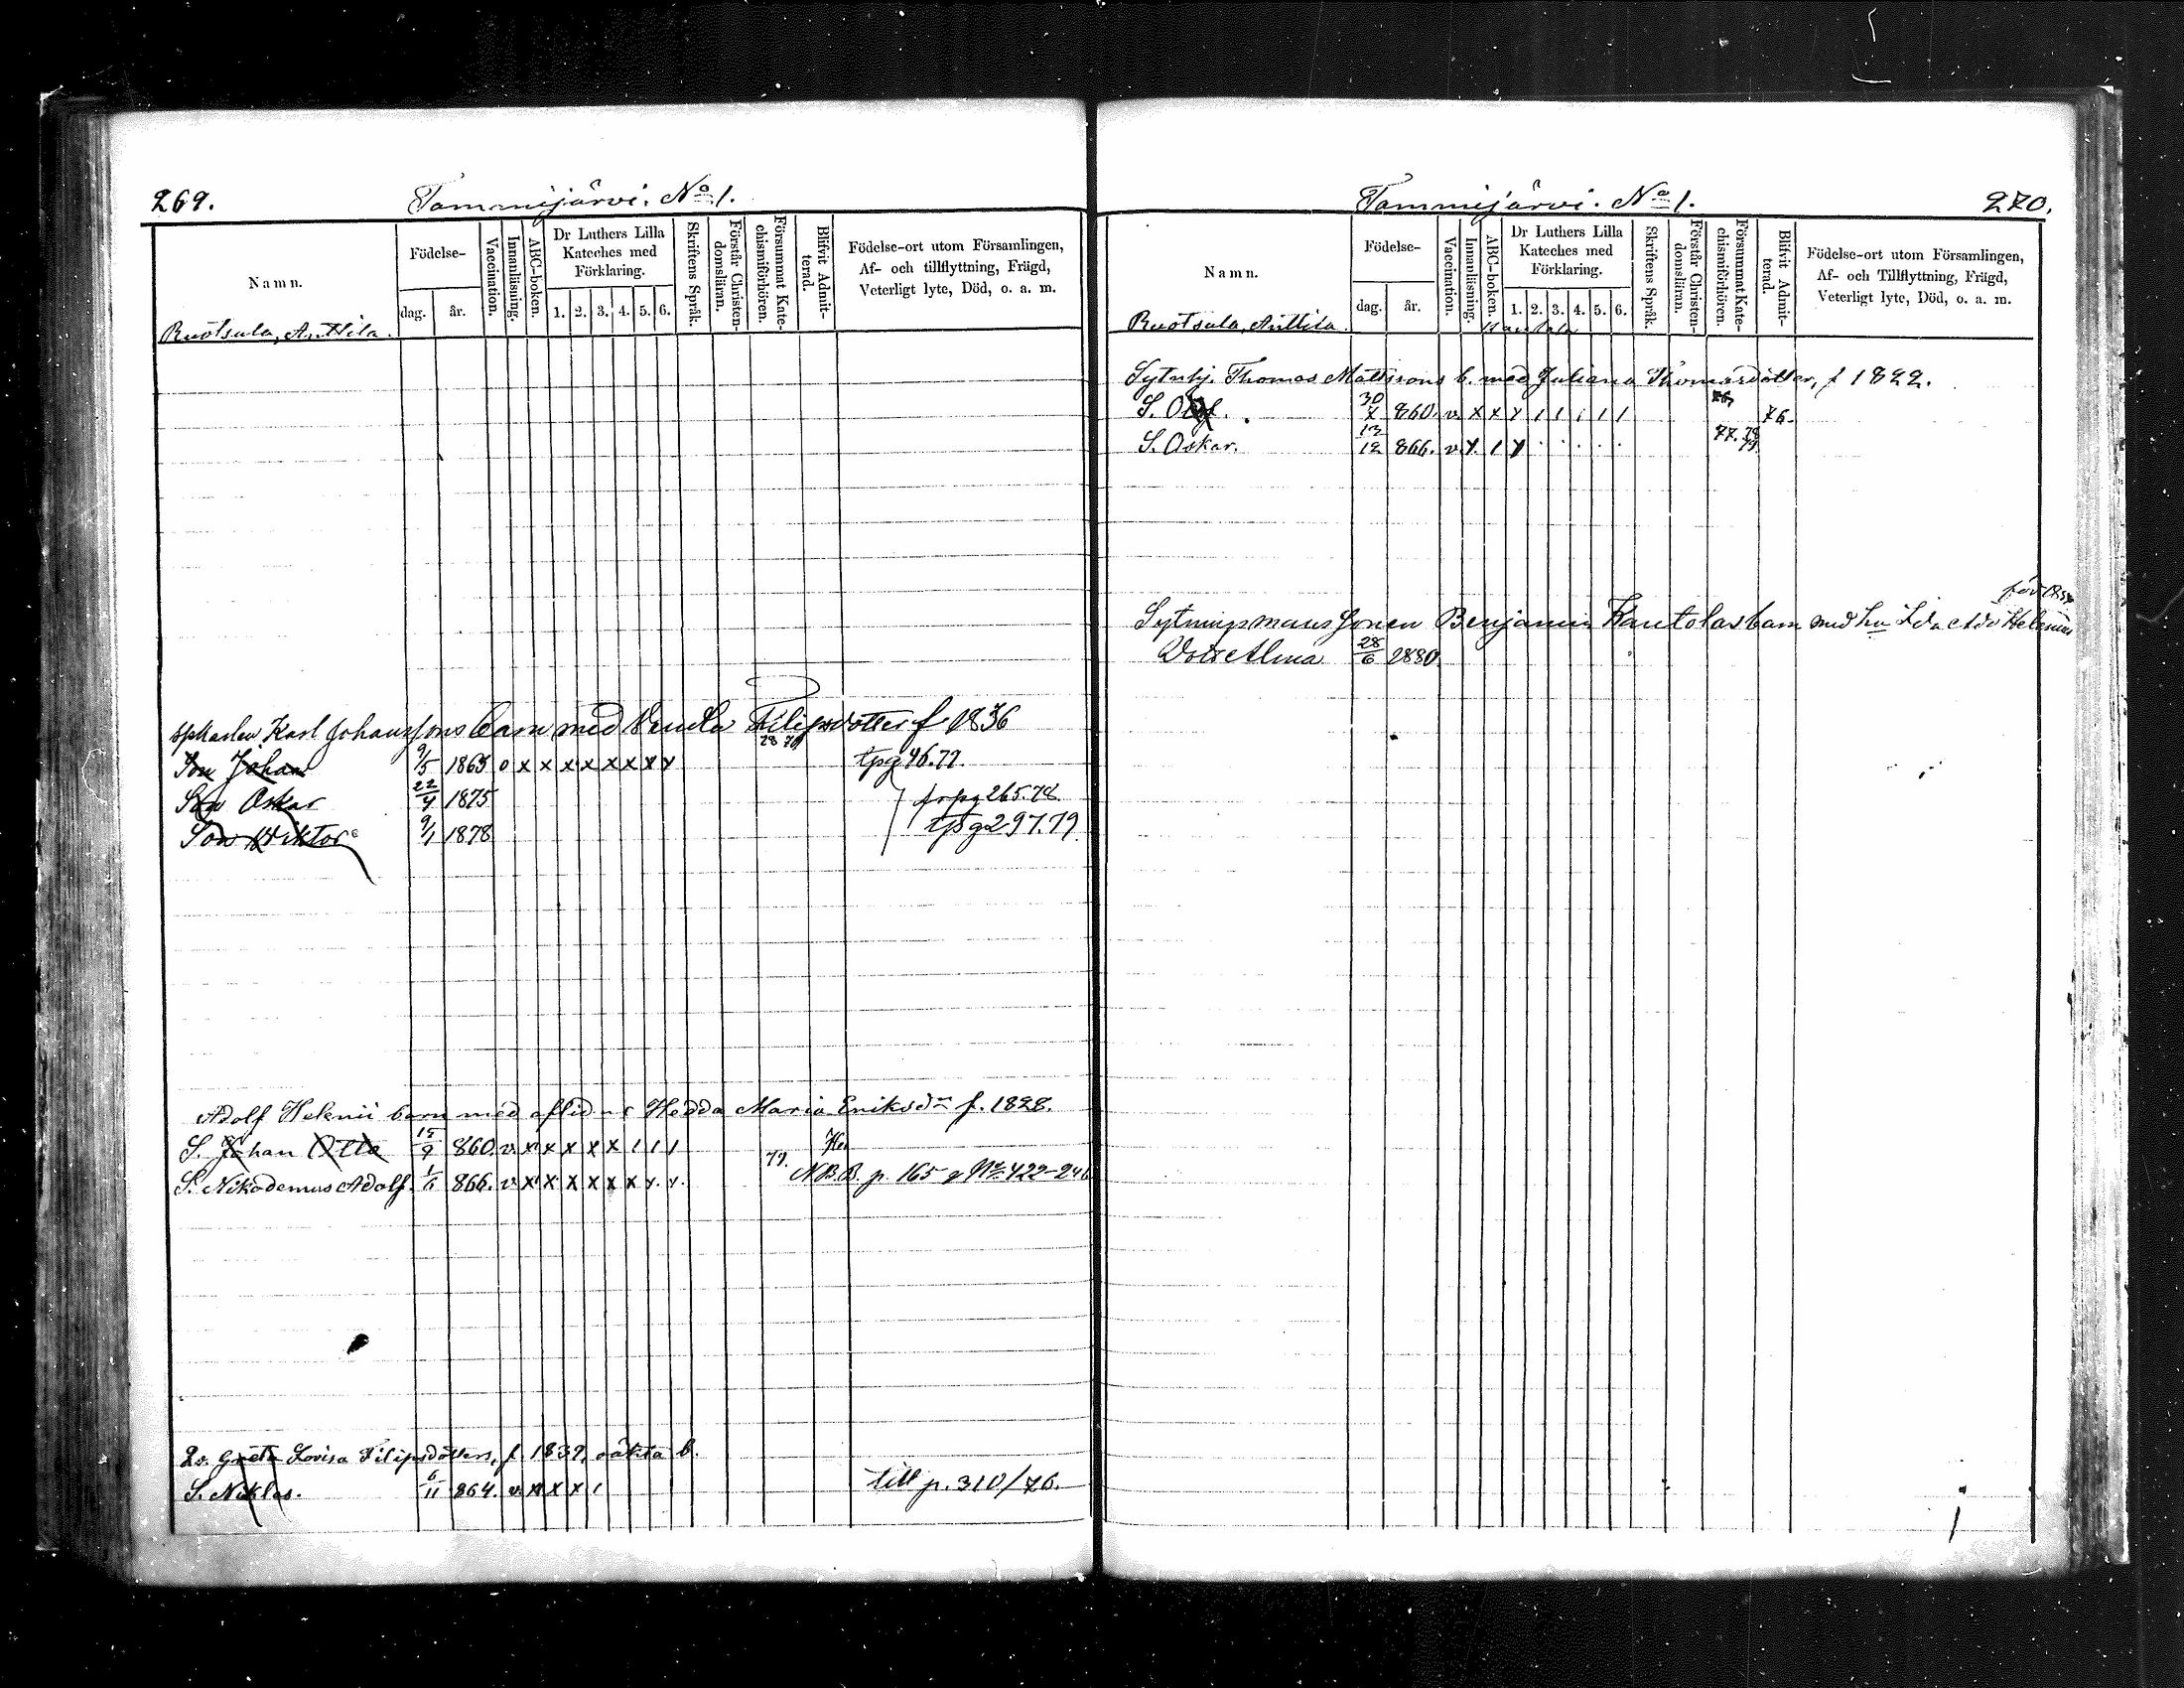 269.
Tammijärvi. No 1.
Namn.
Födelse-
dag.
år.
Vaccination.
Innanläsning.
ABC-boken.
Dr Luthers Lilla
Kateches med
Förklaring.
1. 2. 3. 4. 5. 6.
Skriftens Språk.
Förstår Christen-
domsläran.
Försummat Kate-
chismiförhören.
Blifvit Admit-
terad.
Födelse-ort utom Församlingen,
Af- och tillflyttning, Frägd,
Veterligt lyte, Död, o. a. m.
Ruotsula, Anttila.
Karl Johanssons barn med Vendla Filipsdotter f. 1836
Son Johan 9/5 1865 o x x x x x x x y tpg 46.77.
Son Oskar 22/4 1875 frpg 265.78
Son Wiktor 9/1 1878 tpg 297.79
Adolf Helenii barn med aflidne Hedda Maria Eriksdr f. 1828.
S. Johan Otto 15/9 860. v x x x x x 1 1 1
S. Nikodemus Adolf. 1/6 866. v x x x x x x y. y. 79. N.B.B. p. 165
Greta Lovisa Filipsdotters, f. 1839, oäkta b.
S. Niklas. 6/11 864. v. x x x x 1 till p. 310/76.
Tammijärvi. No 1.
270.
Namn.
Födelse-
dag.
år.
Vaccination.
Innanläsning.
ABC-boken.
Dr Luthers Lilla
Kateches med
Förklaring.
1. 2. 3. 4. 5. 6.
Skriftens Språk.
Förstår Christen-
domsläran.
Försummat Kate-
chismiförhören.
Blifvit Admit-
terad.
Födelse-ort utom Församlingen,
Af- och Tillflyttning, Frägd,
Veterligt lyte, Död, o. a. m.
Ruotsula, Anttila.
Sytnhj. Thomas Mattssons b. med Juliana Thomasdotter, f 1822.
S. 30/7 860. v. x x y 1 1 1 1 1 76.
S. Oskar. 13/12 866. v y. 1 y 77. 78 79
Sytningsmanssonen Benjamin Kautolas barn med Ida Helenius
Alma 28/6 2880